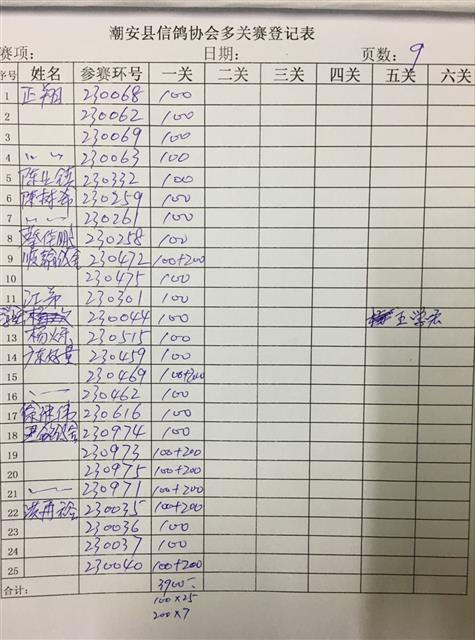 潮安县信鸽协会多关赛登记表
赛项: 日期: 页数: 9
序号 姓名 参赛环号 一关 二关 三关 四关 五关 六关
1 正翔 230068 100
2 230062 100
3 230069 100
4 〃 〃 230063 100
5 陈生镇 230332 100
6 陈树希 230259 100
7 〃 〃 230261 100
8 蔡佳鹏 230258 100
9 顺翰鸽舍 230472 100+200
10 230475 100
11 江弟 230301 100
230044 100 王学宏
13 杨炳 230515 100
14 230459 100
15 230469 100+200
16 230462 100
17 徐沛伟 230616 100
18 230974 100
19 230973 100+200
20 230975 100+200
21 230971 100+200
22 洪再裕 230035 100+200
23 230036 100
24 230037 100
25 230040 100+200
合计: 3900
100×25
200×7